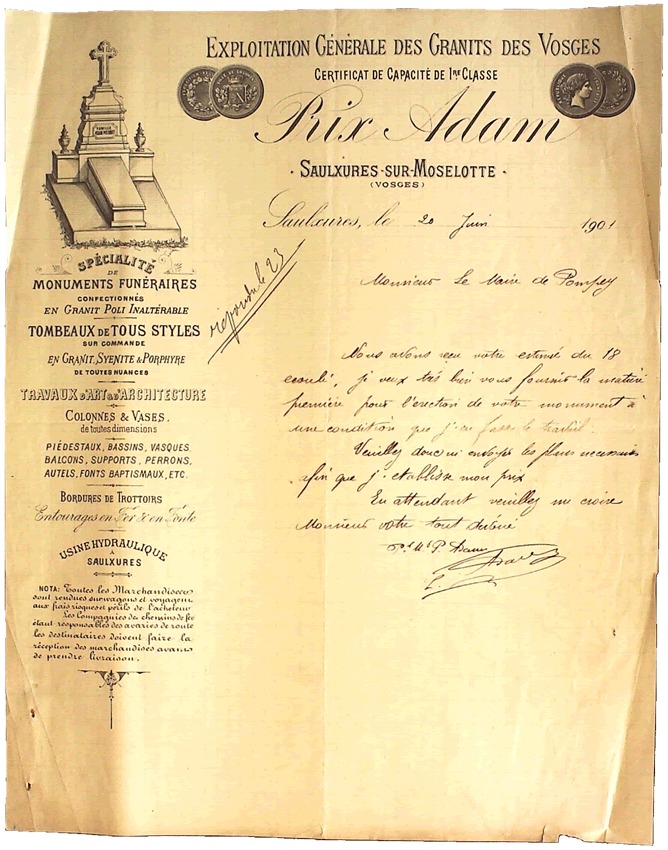 EXPLOITATION GÉNÉRALE DES GRANITS DES VOSGES
CERTIFICAT DE CAPACITÉ DE 1RE CLASSE
Prix Adam
SAULXURES-SUR-MOSELOTTE
(VOSGES)
Saulxures, le 20 Juin 1901
répondu le 23
Monsieur Le Maire de Pompey
Nous avons reçu votre estimé du 18
ecoulé, je veux très bien vous fournir la matière
première pour l'erection de votre monument à
une condition que j'en fasse le travail.
Veuillez donc m'envoyer les plans necessaires
afin que j'etablisse mon prix
En attendant veuillez me croire
Monsieur votre tout dévoué
Adam
SPÉCIALITÉ
DE
MONUMENTS FUNÉRAIRES
CONFECTIONNÉS
EN GRANIT POLI INALTÉRABLE
TOMBEAUX DE TOUS STYLES
SUR COMMANDE
EN GRANIT, SYENITE & PORPHYRE
DE TOUTES NUANCES
TRAVAUX D'ART & D'ARCHITECTURE
COLONNES & VASES.
de toutes dimensions
PIÉDESTAUX, BASSINS, VASQUES,
BALCONS, SUPPORTS, PERRONS,
AUTELS, FONTS BAPTISMAUX, ETC.
BORDURES DE TROTTOIRS
Entourages en Fer & en Fonte
USINE HYDRAULIQUE
À
SAULXURES
NOTA: Toutes les Marchandises
sont rendues sur wagons et voyagent
aux frais risques et périls de l'acheteur
Les Compagnies de chemins de fer
étant responsables des avaries de route
les destinataires doivent faire la
réception des marchandises avant
de prendre livraison.